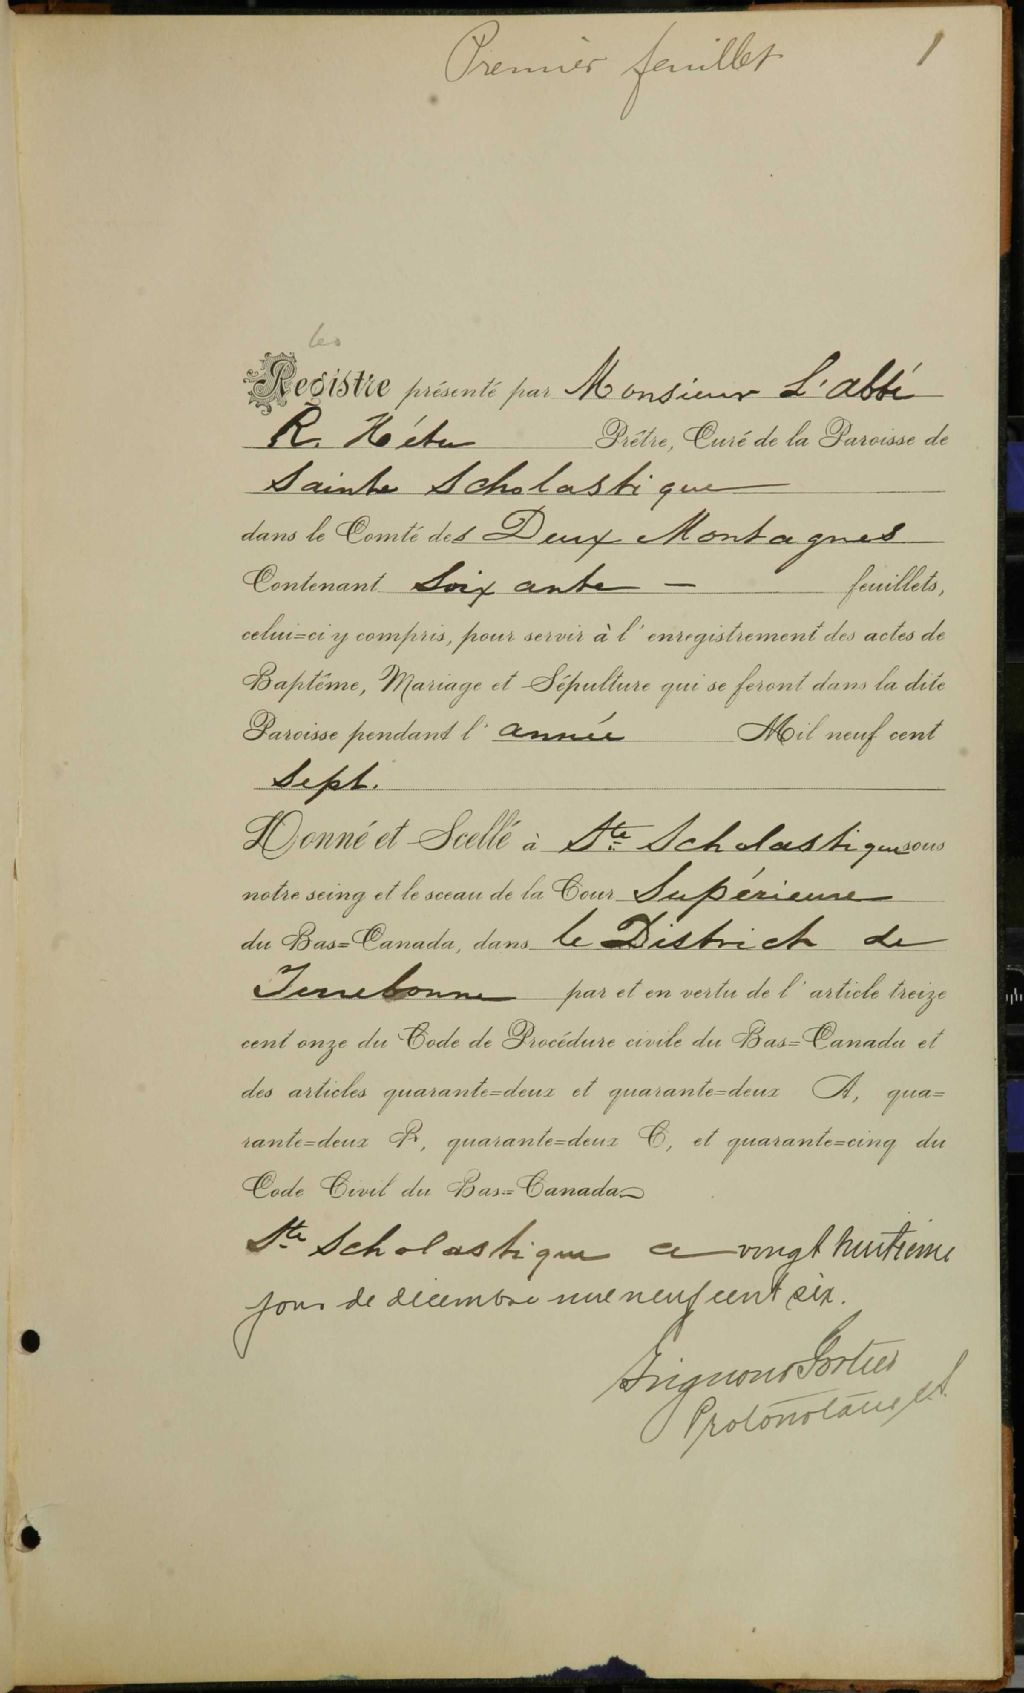 Premier feuillet 1
Registre présenté par Monsieur L'abbé
R. Hétu Prêtre, Curé de la Paroisse de
Sainte Scholastique
dans le Comté des Deux Montagnes
Contenant Soixante — feuillets,
celui=ci y compris, pour servir à l'enregistrement des actes de
Baptême, Mariage et Sépulture qui se feront dans la dite
Paroisse pendant l'année Mil neuf cent
Sept.
Donné et Scellé à Ste Scholastique sous
notre seing et le sceau de la Cour Supérieure
du Bas=Canada, dans le District de
Terrebonne par et en vertu de l'article treize
cent onze du Code de Procédure civile du Bas=Canada et
des articles quarante=deux et quarante=deux A, qua=
rante=deux B, quarante=deux C, et quarante=cinq du
Code Civil du Bas=Canada
Ste Scholastique ce vingt huitième
jour de décembre mil neuf cent six.
Grignon & Fortier
Protonotaire C.S.